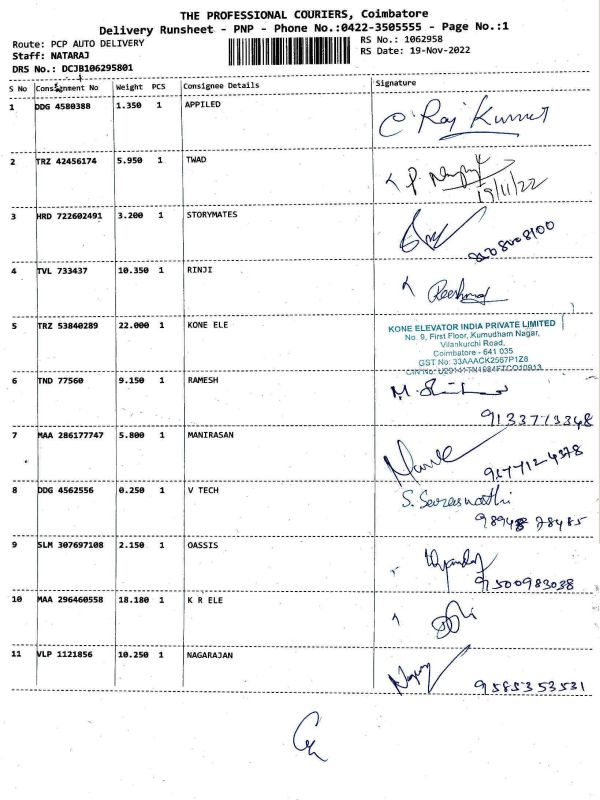 THE PROFESSIONAL COURIERS, Coimbatore
Delivery Runsheet - PNP - Phone No.:0422-3505555 - Page No.:1
Route: PCP AUTO DELIVERY RS No.: 1062958
Staff: NATARAJ RS Date: 19-Nov-2022
DRS No.: DCJB106295801
S No Consignment No Weight PCS Consignee Details Signature
1 DDG 4580388 1.350 1 APPILED
C Raj Kumar
2 TRZ 42456174 5.950 1 TWAD
P
19/11/22
3 HRD 722602491 3.200 1 STORYMATES
4 TVL 733437 10.350 1 RINJI
Reeshma
5 TRZ 53840289 22.000 1 KONE ELE
KONE ELEVATOR INDIA PRIVATE LIMITED
No. 9, First Floor, Kumudham Nagar,
Vilankurchi Road,
Coimbatore - 641 035
GST No: 33AAACK2567P1Z8
CIN No: U29141TN1984FTCO10913
6 TND 77560 9.150 1 RAMESH
9133773348
7 MAA 286177747 5.800 1 MANIRASAN
8 DDG 4562556 0.250 1 V TECH
S. Saraswathi
9 SLM 307697108 2.150 1 OASSIS
9500983038
10 MAA 296460558 18.180 1 K R ELE
11 VLP 1121856 10.250 1 NAGARAJAN
9585353531